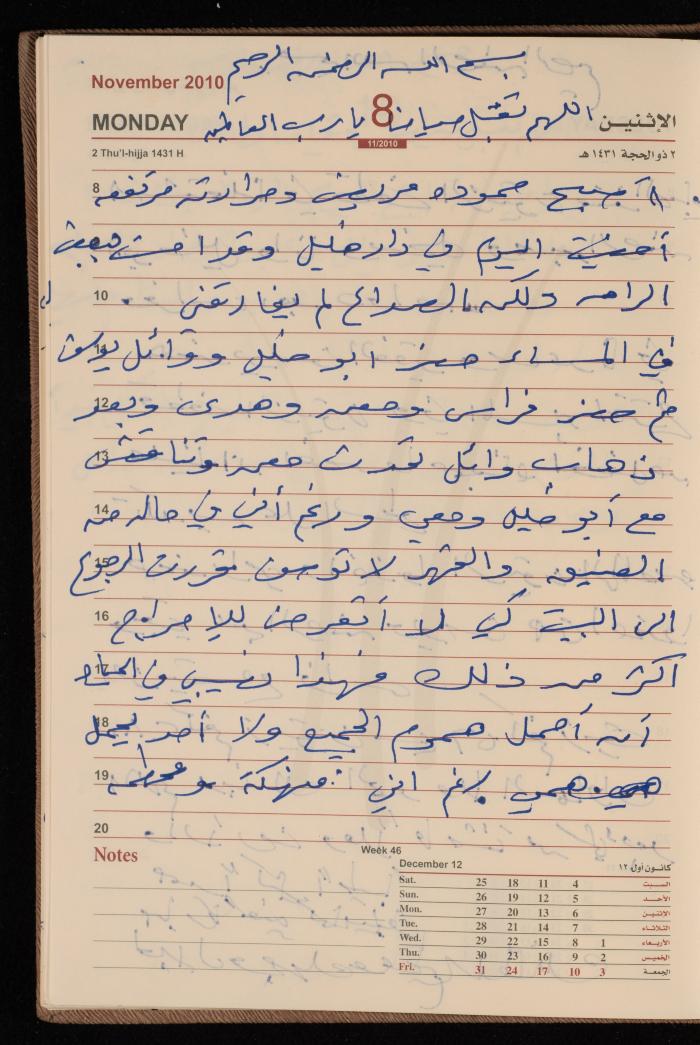 بسم الله الرحمن الرحيم
November 2010
اللهم تقبل صيامنا يا رب العالمين
MONDAY 8 الإثنين
11/2010
2 Thu'l-hijja 1431 H ٢ ذو الحجة ١٤٣١ هـ
8 أصبح حموده مريض وحرارته مرتفعه
أمضيت اليوم في دار خليل وقد احسست ببعض
10 الراحه ولكن الصداع لم يفارقني
11 في المساء حضر ابو خليل ووائل يوسف
12 ثم حضر فراس وحمعه وهدى وبعد
13 ذهاب وائل تحدث جمعه وتناقش
14 مع أبو خليل ومعي ورغم أني في حاله من
15 الضيق والقهر لا توصف قررت الرجوع
16 الى البيت كي لا أتعرض للإحراج
17 اكثر من ذلك فهذا نصيبي في الحياه
18 أن أحمل هموم الجميع ولا أحد يحمل
19 همي رغم اني منهكة
20
Notes
Week 46
December 12 كانون أول ١٢
Sat. 25 18 11 4 السبت
Sun. 26 19 12 5 الأحد
Mon. 27 20 13 6 الاثنين
Tue. 28 21 14 7 الثلاثاء
Wed. 29 22 15 8 1 الأربعاء
Thu. 30 23 16 9 2 الخميس
Fri. 31 24 17 10 3 الجمعة